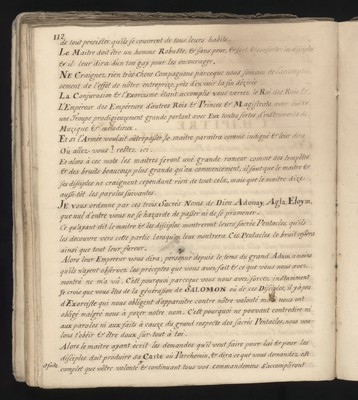 112
de tout persister qu'ils se couvrent de tous leurs habits.
Le Maitre doit être un homme Robuste, & sans peur, &
& il leur dira d'un ton gay pour les encourager.
NE Craignez rien très Chers Compagnons parceque nous sommes
sement de l'effet de nôtre entreprise, près d'en voir la fin désirée
La Conjuration & l'Exorcisme étant accomplis vous verrez le Roi des Rois &
L'Empereur des Empereurs d'autres Rois & Princes & Magistrats avec
une Troupe prodigieusement grande portant avec Eux toutes sortes d'instruments de
Muzique & melodieux.
Et si l'Armée voulait le maitre paraitra comme indigné & leur dira
Ou allez vous ? restez ici.
Et alors à ces mots les maitres feront une grande rumeur comme des tempêtes
& des bruits beaucoup plus grands qu'au commencement, il faut que le maitre &
ses disciples ne craignent cependant rien de tout cela, mais que le maitre dize
aussi-tôt les paroles suivantes.
JE vous ordonne par ces trois Sacrés Noms de Dieu Adonay, Agla, Eloym,
que nul d'entre vous ne se hazarde de passer ni de se promener.
Ce qu'ayant dit le maitre & les disciples montreront leurs sacrés Pentacles, qu'ils
les decouvre vers cette partie, lorsqu'on leur montrera Ces Pentacles le bruit cessera
ainsi que tout leur fureur.
Alors leur Empereur vous dira; personne depuis le tems du grand Adam à moins
qu'ils n'ayent observez les préceptes que vous avez fait & ce que vous nous avez
montré ne m'a vû. C'est pourquoi parceque vous nous avez forcez instamment
Je crois que vous êtes de la génération de SALOMON ou de ses Disciples, il y a peu
d'Exorciste qui nous obligent d'apparaitre contre nôtre volonté mais nous ont
obligé malgré nous à payer nôtre nom. C'est pourquoi ne pouvant contredire ni
aux paroles ni aux faits à cauze du grand respects des sacrés Pentacles, nous vou
lons t'obéir & être doux sur tout à toi.
Alors le maitre ayant écrit les demandes qu'il veut faire pour lui & pour les
disciples doit produire sa Carte ou Parchemin, & dira ce que vous demandez est
complet que votre volonté & continuant tous vos commandemens s'accompliront